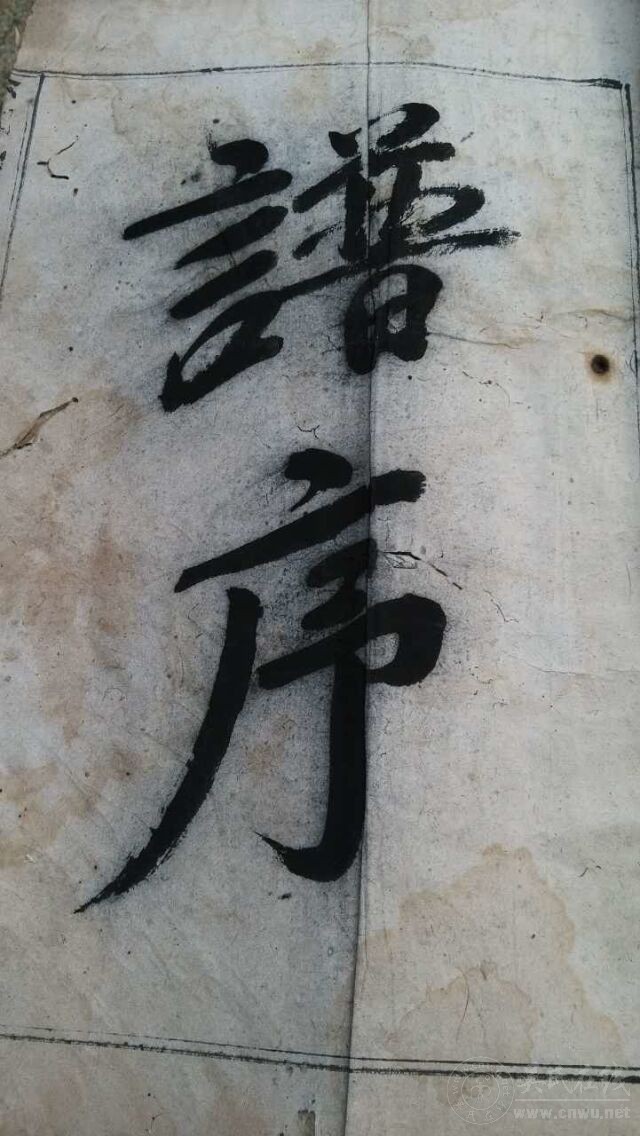 譜
序
www.cnwu.net